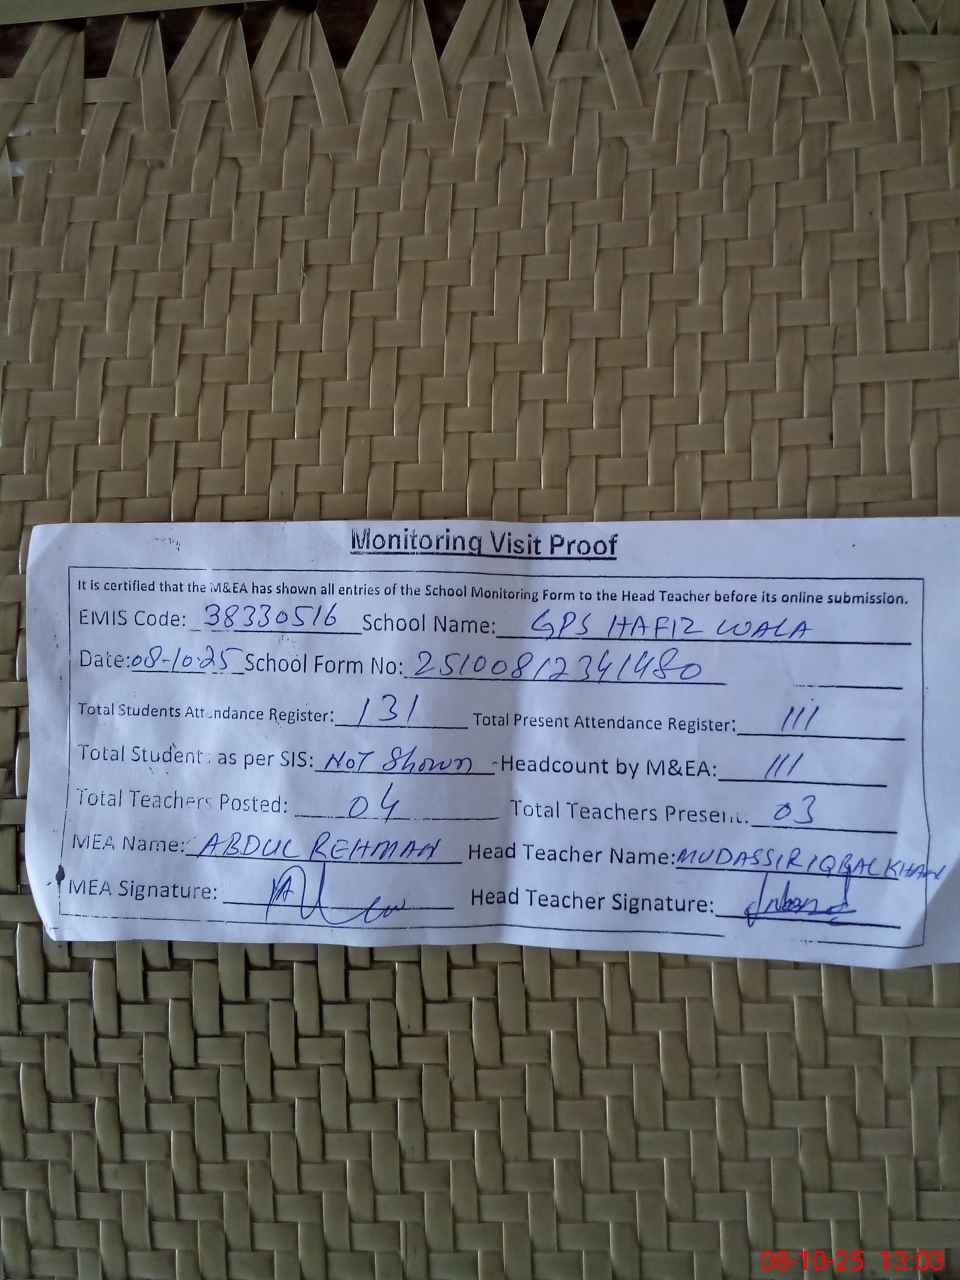 Monitoring Visit Proof
It is certified that the M&EA has shown all entries of the School Monitoring Form to the Head Teacher before its online submission.
EMIS Code: 38330516 School Name: GPS HAFIZ WALA
Date: 08-10-25 School Form No: 25100812341480
Total Students Attendance Register: 131 Total Present Attendance Register: 111
Total Students as per SIS: NOT Shown - Headcount by M&EA: 111
Total Teachers Posted: 04 Total Teachers Present: 03
MEA Name: ABDUL REHMAN Head Teacher Name: MUDASSIR IQBAL KHAN
MEA Signature: Head Teacher Signature:
08-10-25 13:03